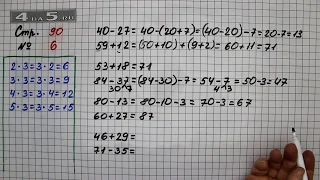 4 НА 5.RU
Стр. 90
№ 6
2·3=3·2=6
3·3=3·3=9
4·3=3·4=12
5·3=3·5=15
40-27=40-(20+7)=(40-20)-7=20-7=13
59+12=(50+10)+(9+2)=60+11=71
53+18=71
84-37=(84-30)-7=54-7=50-3=47
30 7 4 3
80-13=80-10-3=70-3=67
60+27=87
46+29=
71-35=